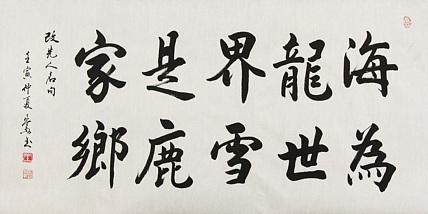 海為
龍世
界雪
是鹿
家鄉
改先人名句
壬寅仲夏